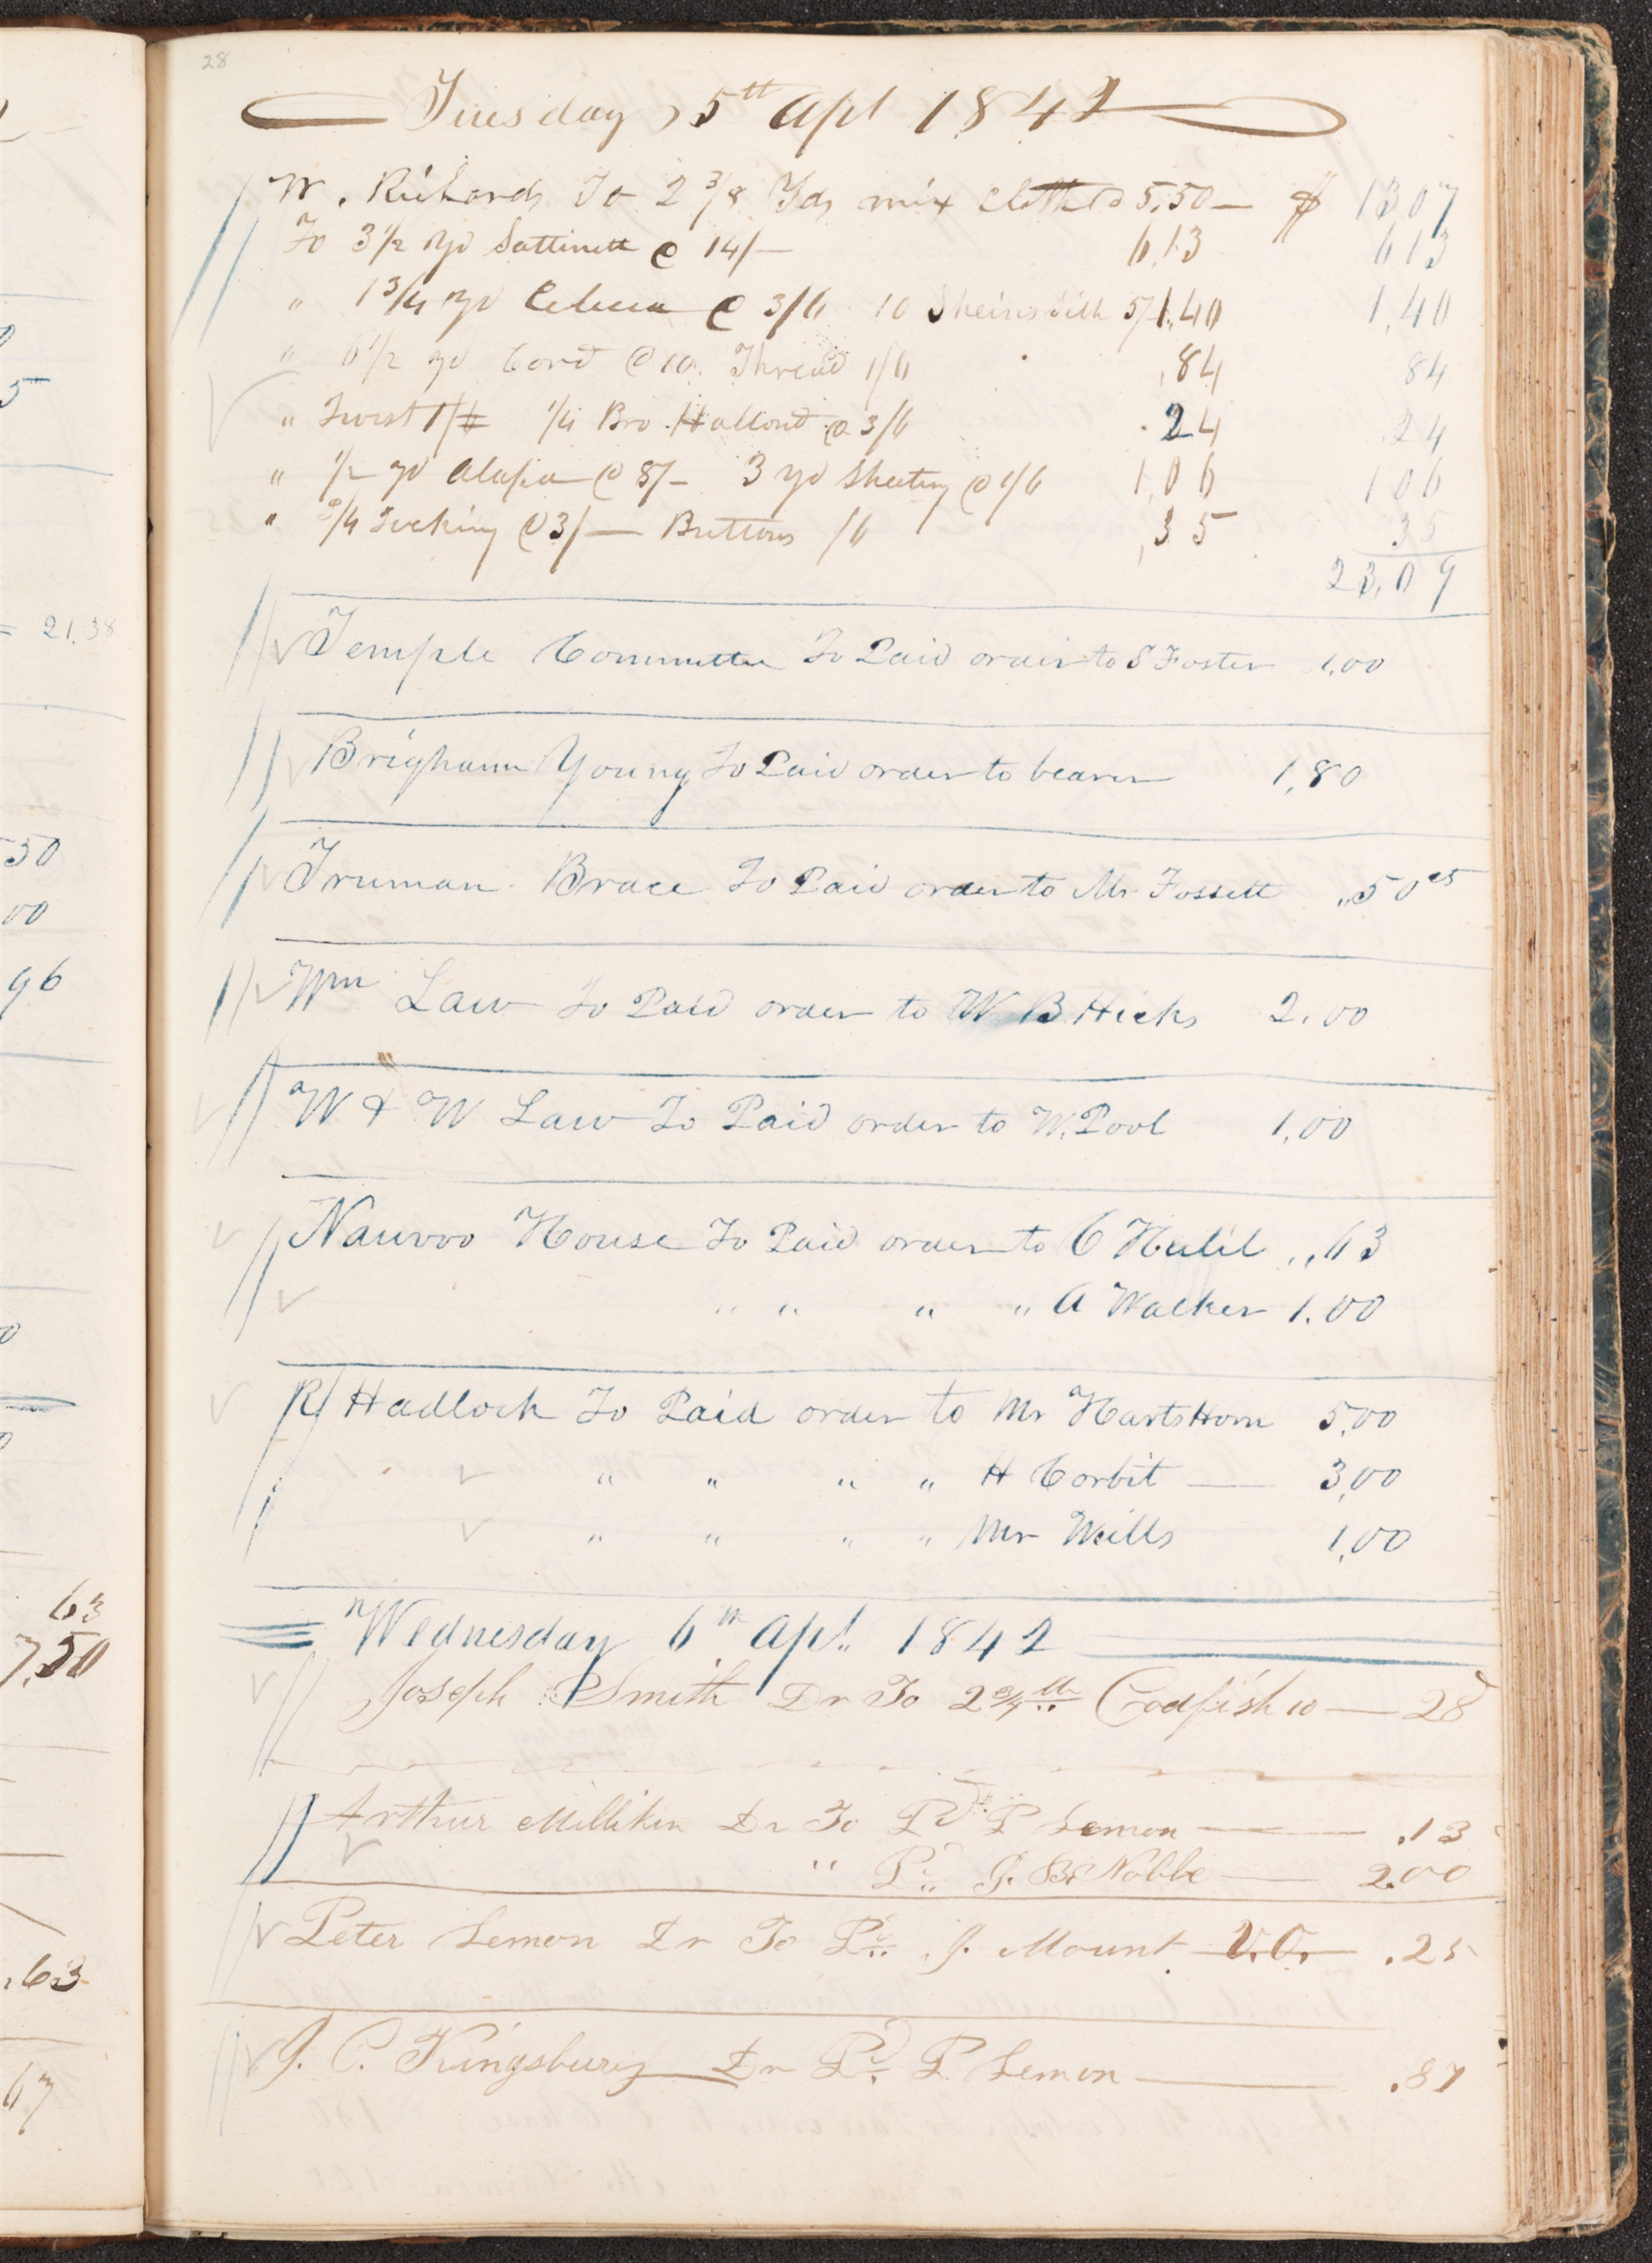 28
Tuesday 5th Apl 1842
W. Richards To 2 3/8 Yds mix Cloth @ 5,50 — $ 13 07
To 3 1/2 yd Sattinett @ 14/— 6,13 6 13
" 1 3/4 yd @ 3/6 10 Skeins Silk 5/ 1,40 1,40
" 6 1/2 yd Cord @ 10. Thread 1/6 ,84 84
" Twist 1/ 1/4 Bro. Hallond @ 3/6 .24 .24
" 1/2 yd Alapa @ 8/— 3 yd Sheeting @ 1/6 1,06 1 06
" 3/4 Tecking @ 3/— Buttons /6 ,35 35
23,09
= 21,38
Temple Committee To Paid order to S Foster 1,00
Brigham Young To Paid order to bearer 1,80
50
Truman Brace To Paid order to Mr Fossett ,,50 cs
00
96
Wm Law To Paid order to W B Hicks 2,00
W & W Law To Paid order to W. Pool 1,00
Nauvoo House To Paid order to C Hulil ,,63
" " " " A Walker 1.00
R Hadlock To Paid order to Mr Hartshorn 5,00
" " " " H Corbit — 3,00
" " " " Mr Wills 1,00
63
Wednesday 6th Apl. 1842
7,50
Joseph Smith Dr To 2 3/4 lb Codfish 10 — 28
Arthur Milliken Dr To Pd P Lemon — .13
" Pd J. B. Nobbe — 2.00
Peter Lemon Dr To Pd J. Mount V.O. .25
.63
J. C. Kingsbury Dr Pd P Lemon — .87
67